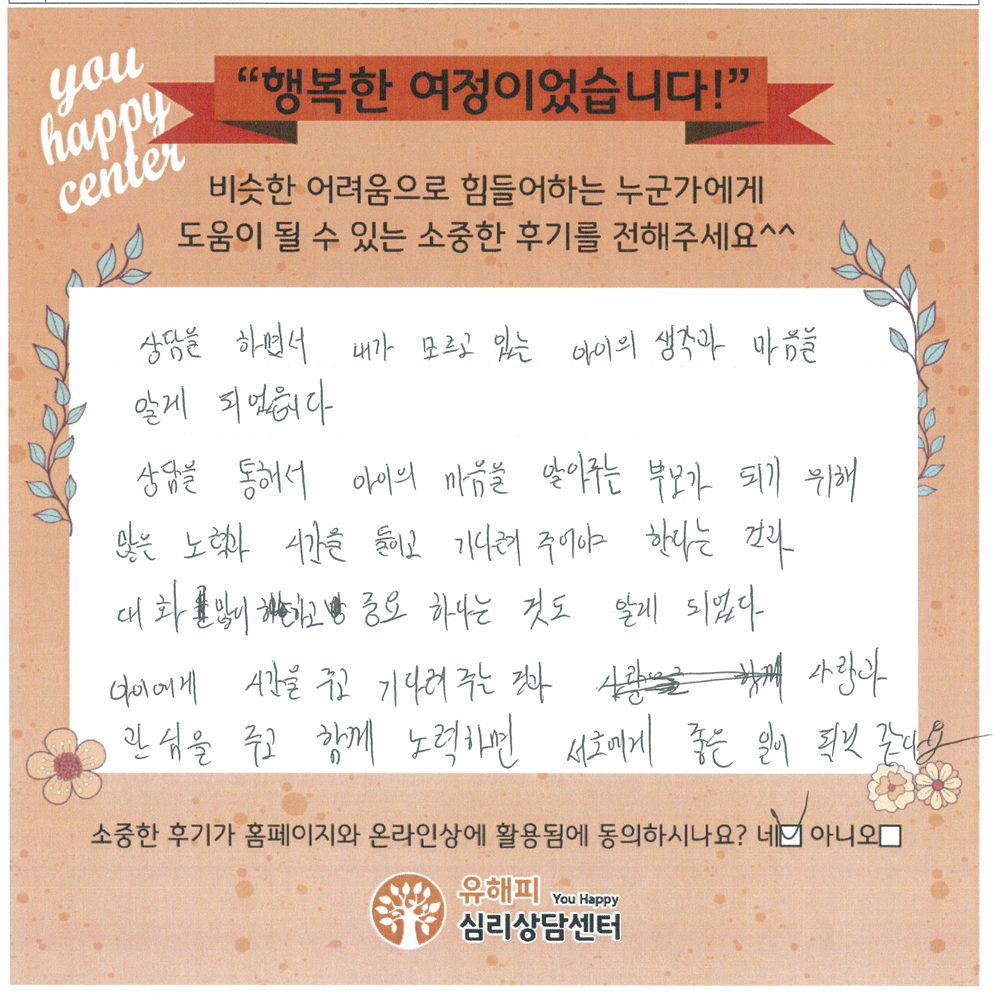 you
happy
center
“행복한 여정이었습니다!”
비슷한 어려움으로 힘들어하는 누군가에게
도움이 될 수 있는 소중한 후기를 전해주세요^^
상담을 하면서 내가 모르고 있는 아이의 생각과 마음을
알게 되었습니다
상담을 통해서 아이의 마음을 알아주는 부모가 되기 위해
많은 노력과 시간을 들이고 기다려 주어야 한다는 것과
대화 많이 중요 하다는 것도 알게 되었다
아이에게 시간을 주고 기다려 주는 것과 사랑과
관심을 주고 함께 노력하면 서로에게 좋은 일이 될것 같다요
소중한 후기가 홈페이지와 온라인상에 활용됨에 동의하시나요? 네 아니오
유해피 You Happy
심리상담센터